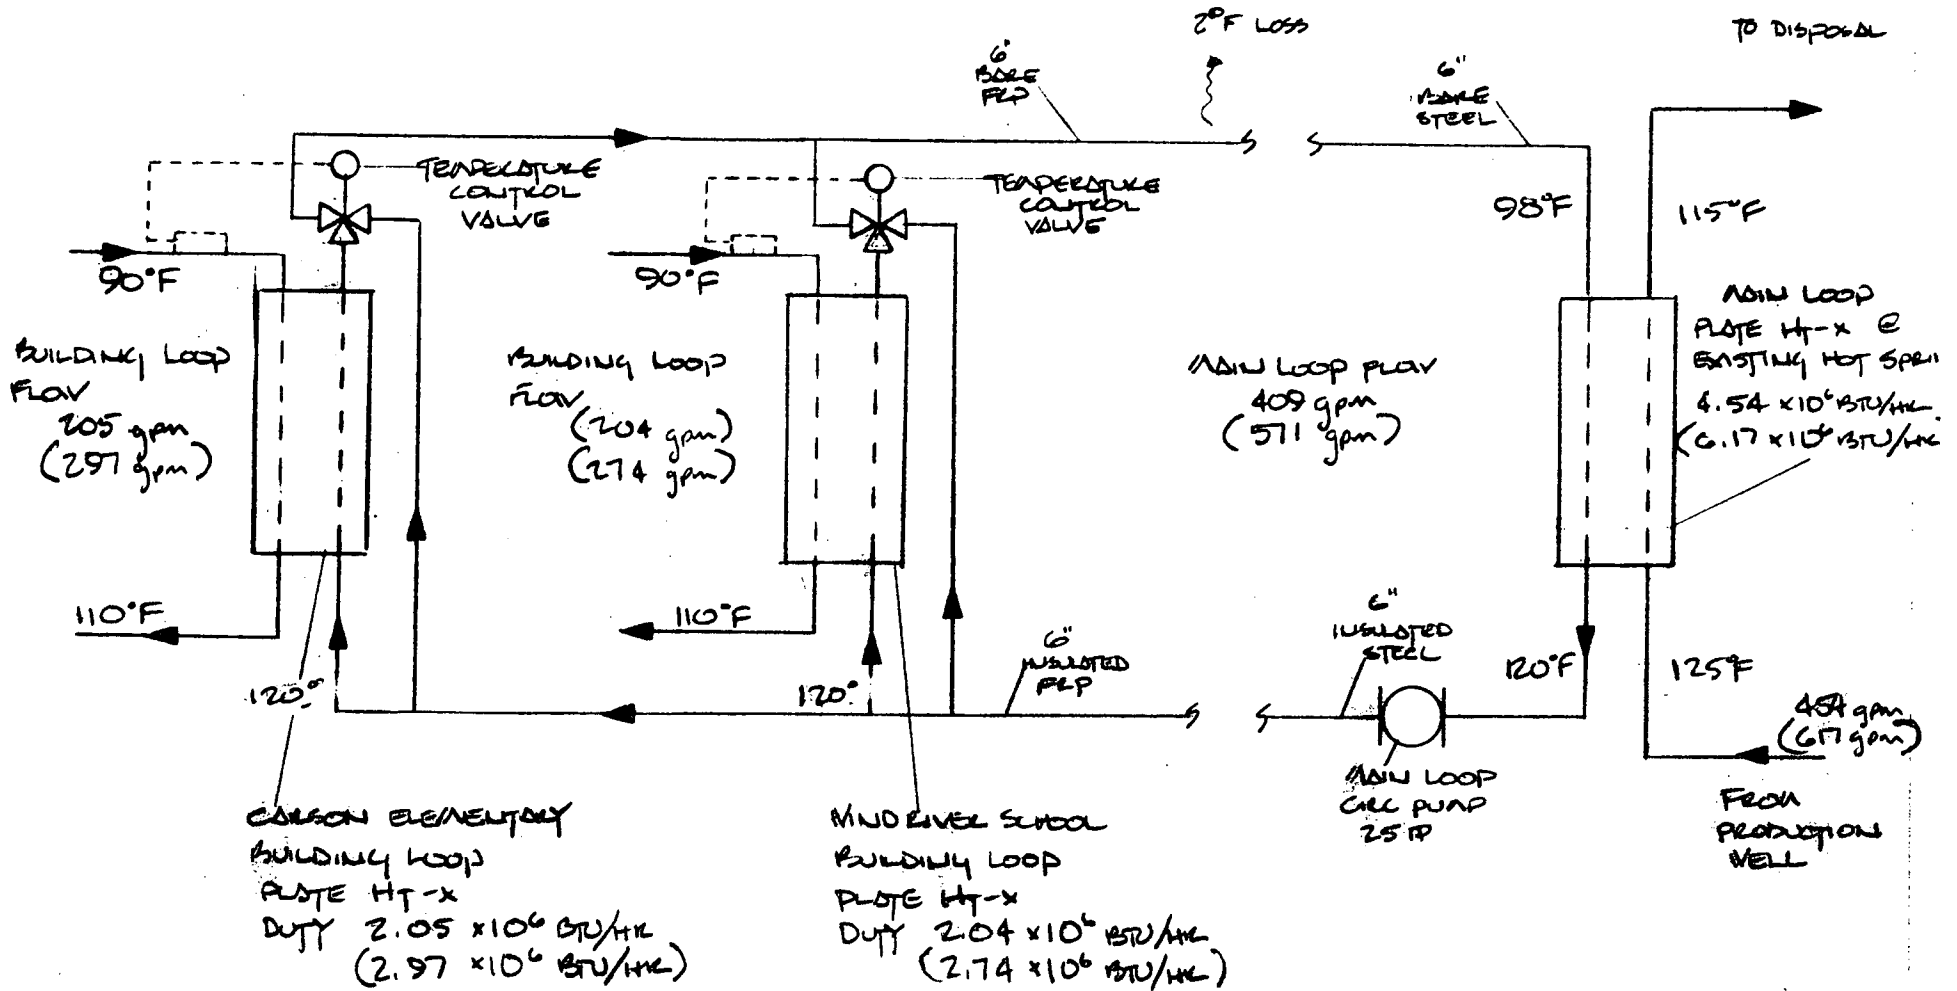 2°F LOSS
TO DISPOSAL
6"
BARE
FRP
6"
BARE
STEEL
TEMPERATURE
CONTROL
VALVE
TEMPERATURE
CONTROL
VALVE
98°F
115°F
90°F
90°F
BUILDING LOOP
FLOW
205 gpm
(297 gpm)
BUILDING LOOP
FLOW
(204 gpm)
(274 gpm)
MAIN LOOP FLOW
409 gpm
(571 gpm)
MAIN LOOP
PLATE HT-X @
EXISTING HOT SPRI
4.54 x10⁶ BTU/HR
(6.17 x10⁶ BTU/HR
110°F
110°F
120°
120°
6"
INSULATED
FRP
6"
INSULATED
STEEL
120°F
125°F
454 gpm
(617 gpm)
MAIN LOOP
CIRC PUMP
25 HP
FROM
PRODUCTION
WELL
CARSON ELEMENTARY
BUILDING LOOP
PLATE HT-X
DUTY 2.05 x10⁶ BTU/HR
(2.97 x10⁶ BTU/HR)
WIND RIVER SCHOOL
BUILDING LOOP
PLATE HT-X
DUTY 2.04 x10⁶ BTU/HR
(2.74 x10⁶ BTU/HR)